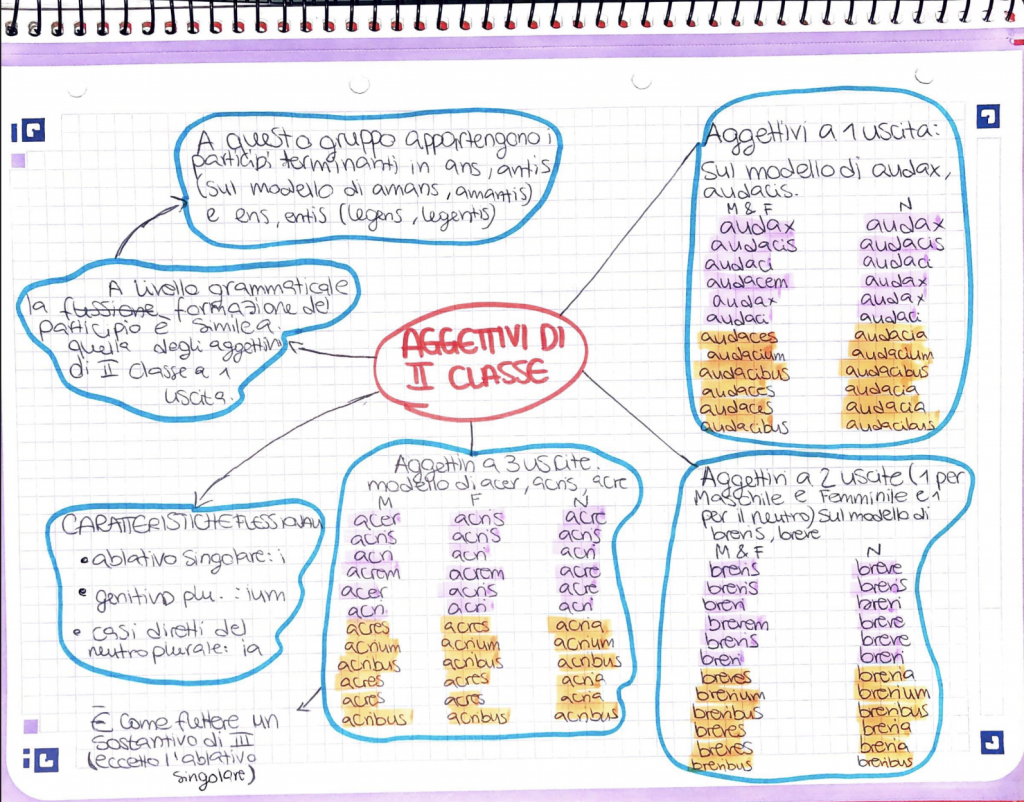 A questo gruppo appartengono i
participi terminanti in ans, antis
(sul modello di amans, amantis)
e ens, entis (legens, legentis)
A livello grammaticale
la fussione formazione del
participio è simile a
quella degli aggettivi
di II classe a 1
uscita.
AGGETTIVI DI
II CLASSE
CARATTERISTICHE FLESSIONALI
• ablativo singolare: i
• genitivo plu. : ium
• casi diretti del
neutro plurale: ia
È come flettere un
sostantivo di III
(eccetto l'ablativo
singolare)
Aggettivi a 3 uscite.
modello di acer, acris, acre
M F N
acer acris acre
acris acris acris
acri acri acri
acrem acrem acre
acer acris acre
acri acri acri
acres acres acria
acrium acrium acrium
acribus acribus acribus
acres acres acria
acres acres acria
acribus acribus acribus
Aggettivi a 1 uscita:
Sul modello di audax,
audacis.
M & F N
audax audax
audacis audacis
audaci audaci
audacem audax
audax audax
audaci audaci
audaces audacia
audacium audacium
audacibus audacibus
audaces audacia
audaces audacia
audacibus audacibus
Aggettivi a 2 uscite (1 per
Maschile e Femminile e 1
per il neutro) Sul modello di
brevis, breve
M & F N
brevis breve
brevis brevis
brevi brevi
brevem breve
brevis breve
brevi brevi
breves brevia
brevium brevium
brevibus brevibus
breves brevia
breves brevia
brevibus brevibus